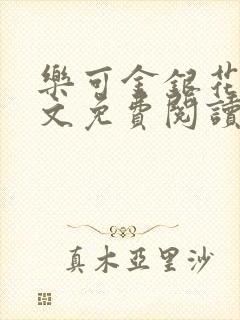 樂可金銀花
文免費閱讀
真木亞里沙